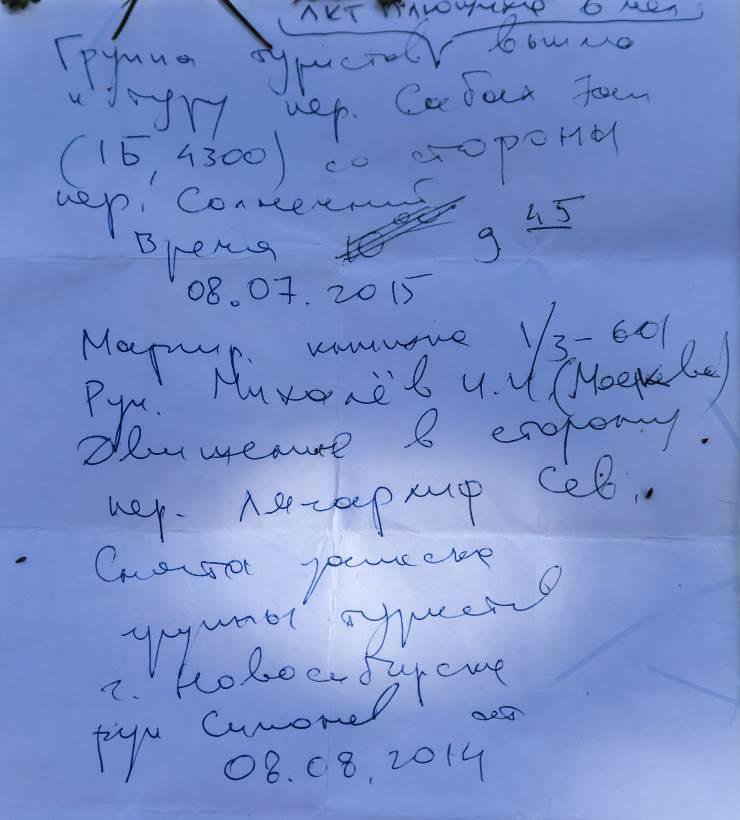 ЛКТ Плющиха 6 чел
Группа туристов вышла
к туру пер. Сабах
(1Б, 4300) со стороны
пер. Солнечный
Время 10 00 9 45
08.07.2015
Маршр. книжка 1/3-601
Рук. Михалёв И.И. (Москва)
Движение в сторону
пер. Лягархиф Сев.
Снята записка
группы туристов
г. Новосибирска
рук Симонов от
08.08.2014